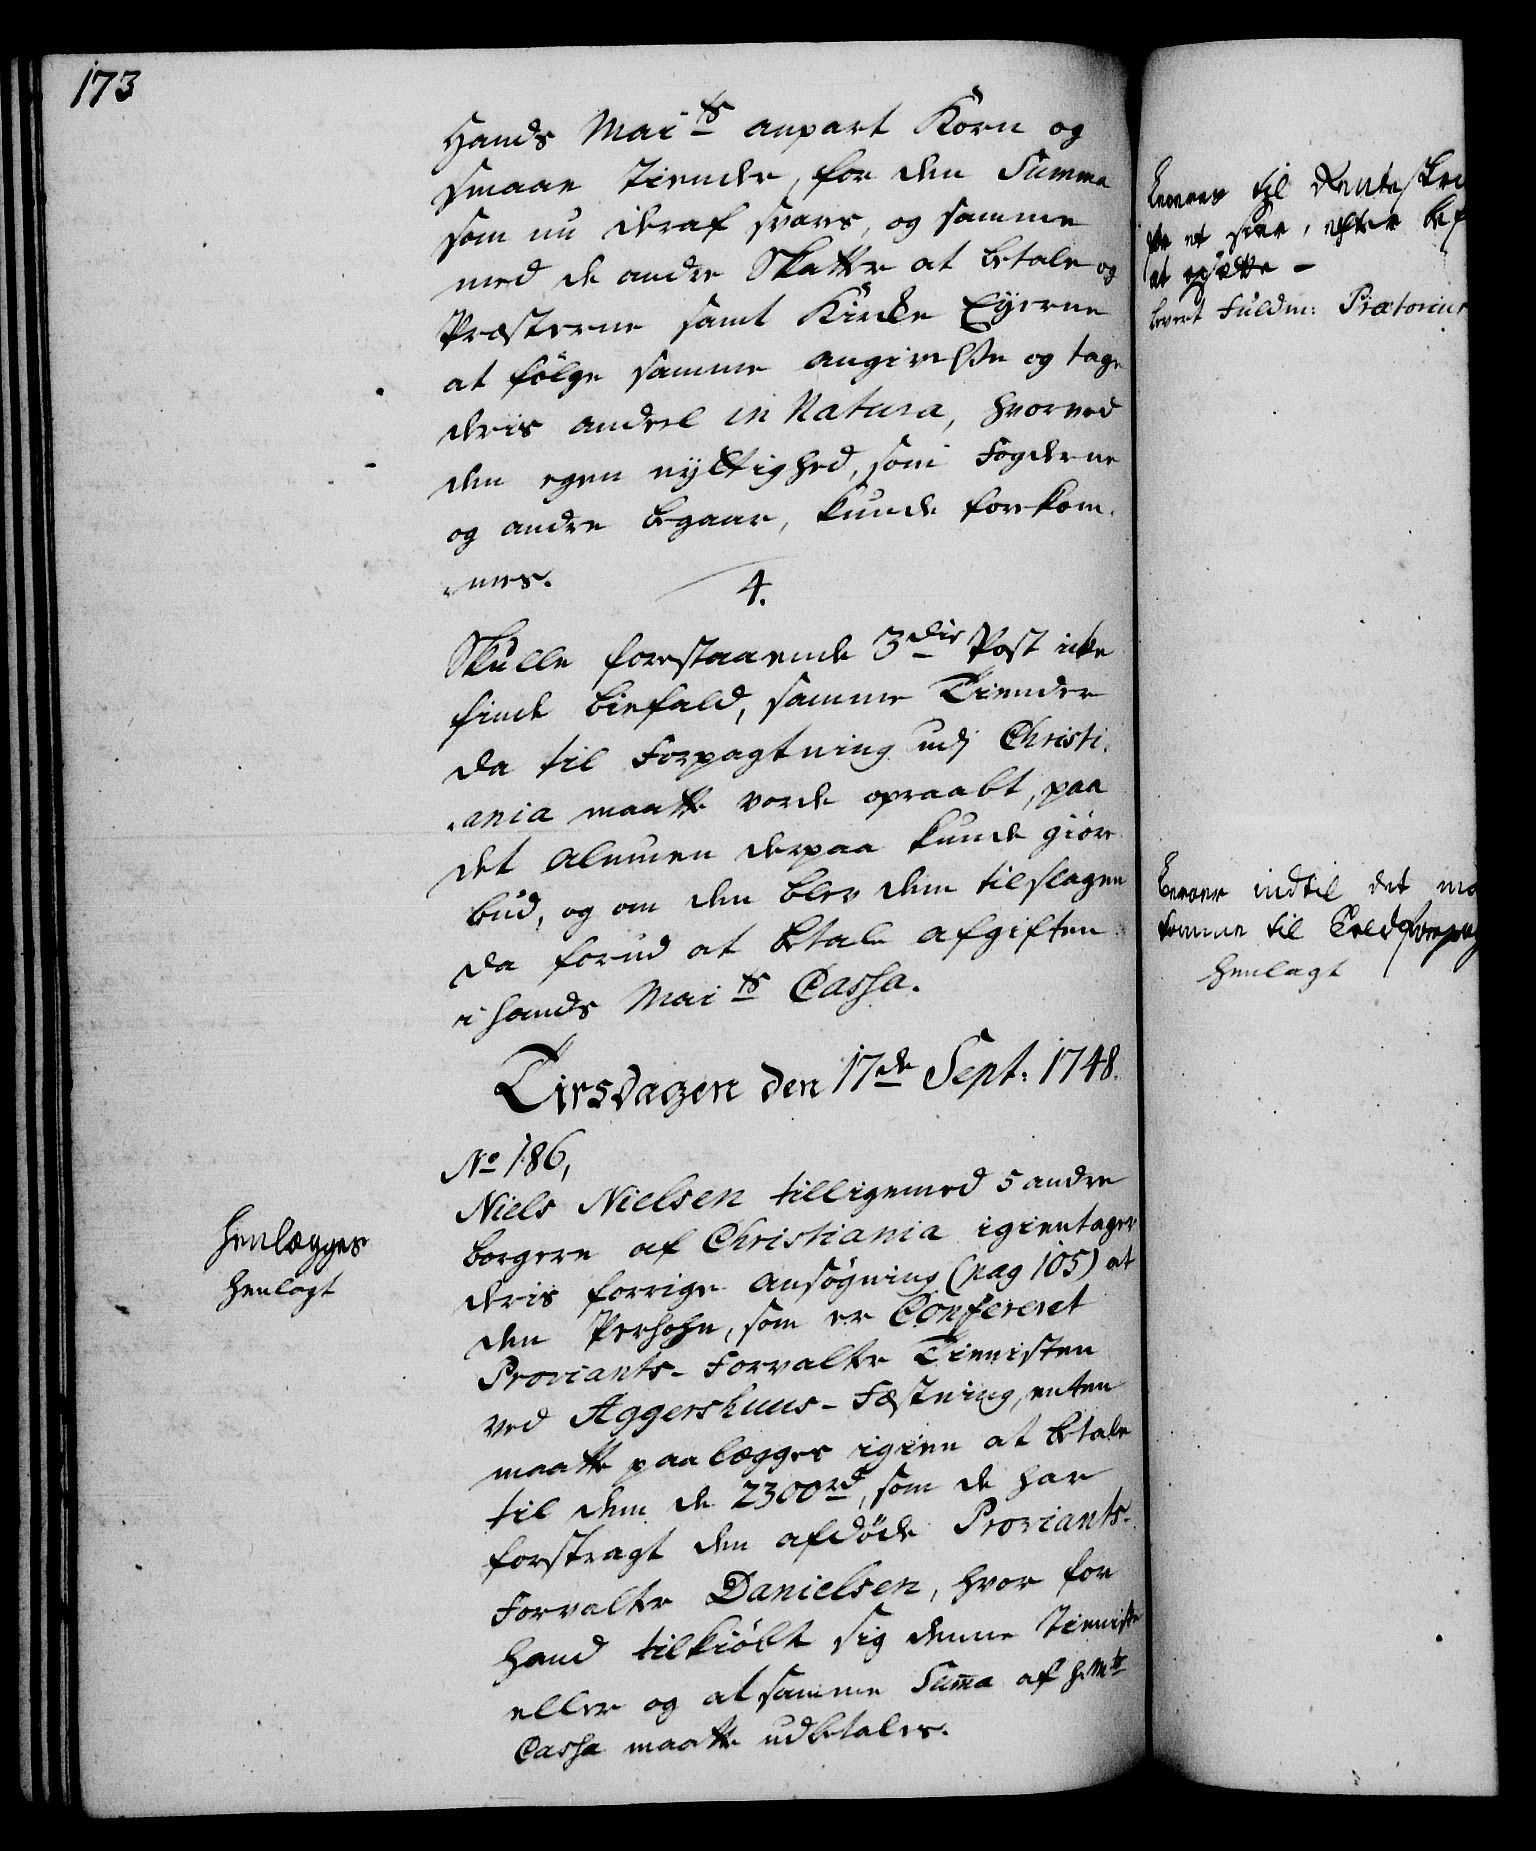 173
Hands Mai ts anpart Korn og
smaae Tiender, for den Summa
som nu deraf svares, og samme
med de andre Skatter at betale og
Præsterne samt Kirke Eyerne
at følge samme angivelse og tage
deris andeel in Natura, hvorved
den egen nyttighed, som Fogderne
og andre begaar, kunde forekom-
mes.
4.
Skulle forestaaende 3die Post icke
finde biefald, samme Tiender
da til Forpagtning udj Christi-
ania maatte vorde opraabt, paa
det Almuen derpaa kunde giøre
bud, og om den blev dem tilslagen
da forud at betale afgiften
i hands Mai ts Cassa.
Tirsdagen den 17de Sept: 1748.
No 186,
Niels Nielsen tilligemed 5 andre
borgere af Christiania igientager
deris forrige ansøgning (pag 105) at
den Persohn, som er Confereret
Proviants-Forvalter Tienisten
ved Aggershuus-Fæstning, enten
maatte paalægges igien at betale
til dem de 2300rd, som de har
forstragt den afdøde Proviants-
Forvalter Danielsen, hvor for
hand tilkiøbte sig denne Tieniste
eller og at samme Suma af H: Mts
Cassa maatte udbetales.
Henlægges
henlagt
til Rentes
at
levert Fuldm: Prætorius
beroer indtil det
komme til
henlagt